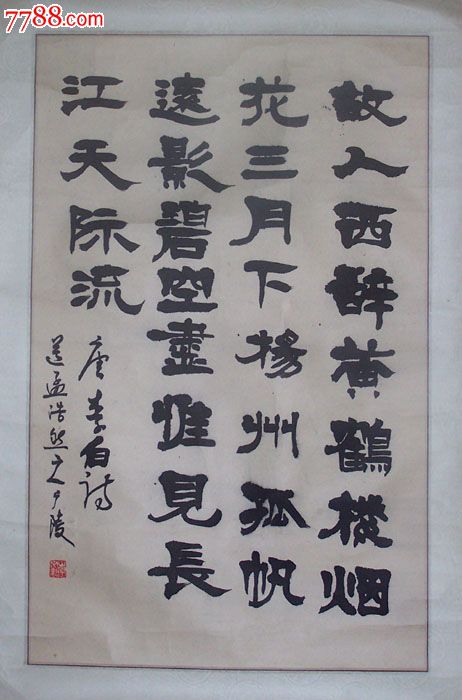 7788.com
故人西辭黄鶴樓烟
花三月下楊州孤帆
遠影碧空盡惟見長
江天际流
唐李白诗
送孟浩然之广陵